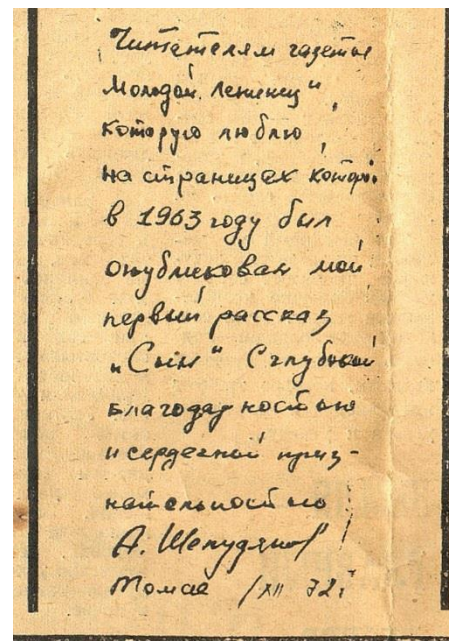 Читателям газеты
Молодой ленинец",
которую люблю,
на страницах которой
в 1963 году был
опубликован мой
первый рассказ
„Сын“ С глубокой
благодарностью
и сердечной приз-
нательностью
А. Шелудяков
/XII 72 г